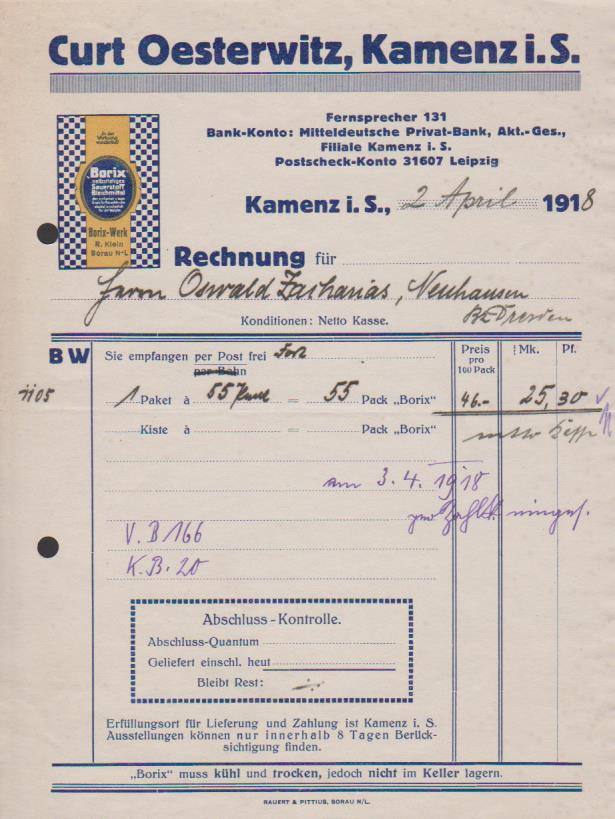 Curt Oesterwitz, Kamenz i. S.
In der Wirkung wunderbar!
Borix
selbsttätiges
Sauerstoff
Bleichmittel
Borix-Werk
R. Klein
Sorau N-L
Fernsprecher 131
Bank-Konto: Mitteldeutsche Privat-Bank, Akt.-Ges.,
Filiale Kamenz i. S.
Postscheck-Konto 31607 Leipzig
Kamenz i. S., 2 April 1918
Rechnung für
Herrn Oswald Zacharias, Neuhausen
Dresden
Konditionen: Netto Kasse.
BW
Sie empfangen per Post frei Dort
per Bahn
Preis pro 100 Pack
Mk. Pf.
1105
1 Paket à 55 Pack = 55 Pack „Borix" 46.- 25,30
Kiste à = Pack „Borix" netto
am 3. 4. 1918
V. B 166
K. B. 20
Abschluss-Kontrolle.
Abschluss-Quantum
Geliefert einschl. heut
Bleibt Rest:
Erfüllungsort für Lieferung und Zahlung ist Kamenz i. S.
Ausstellungen können nur innerhalb 8 Tagen Berück-
sichtigung finden.
„Borix" muss kühl und trocken, jedoch nicht im Keller lagern.
RAUERT & PITTIUS, SORAU N/L.